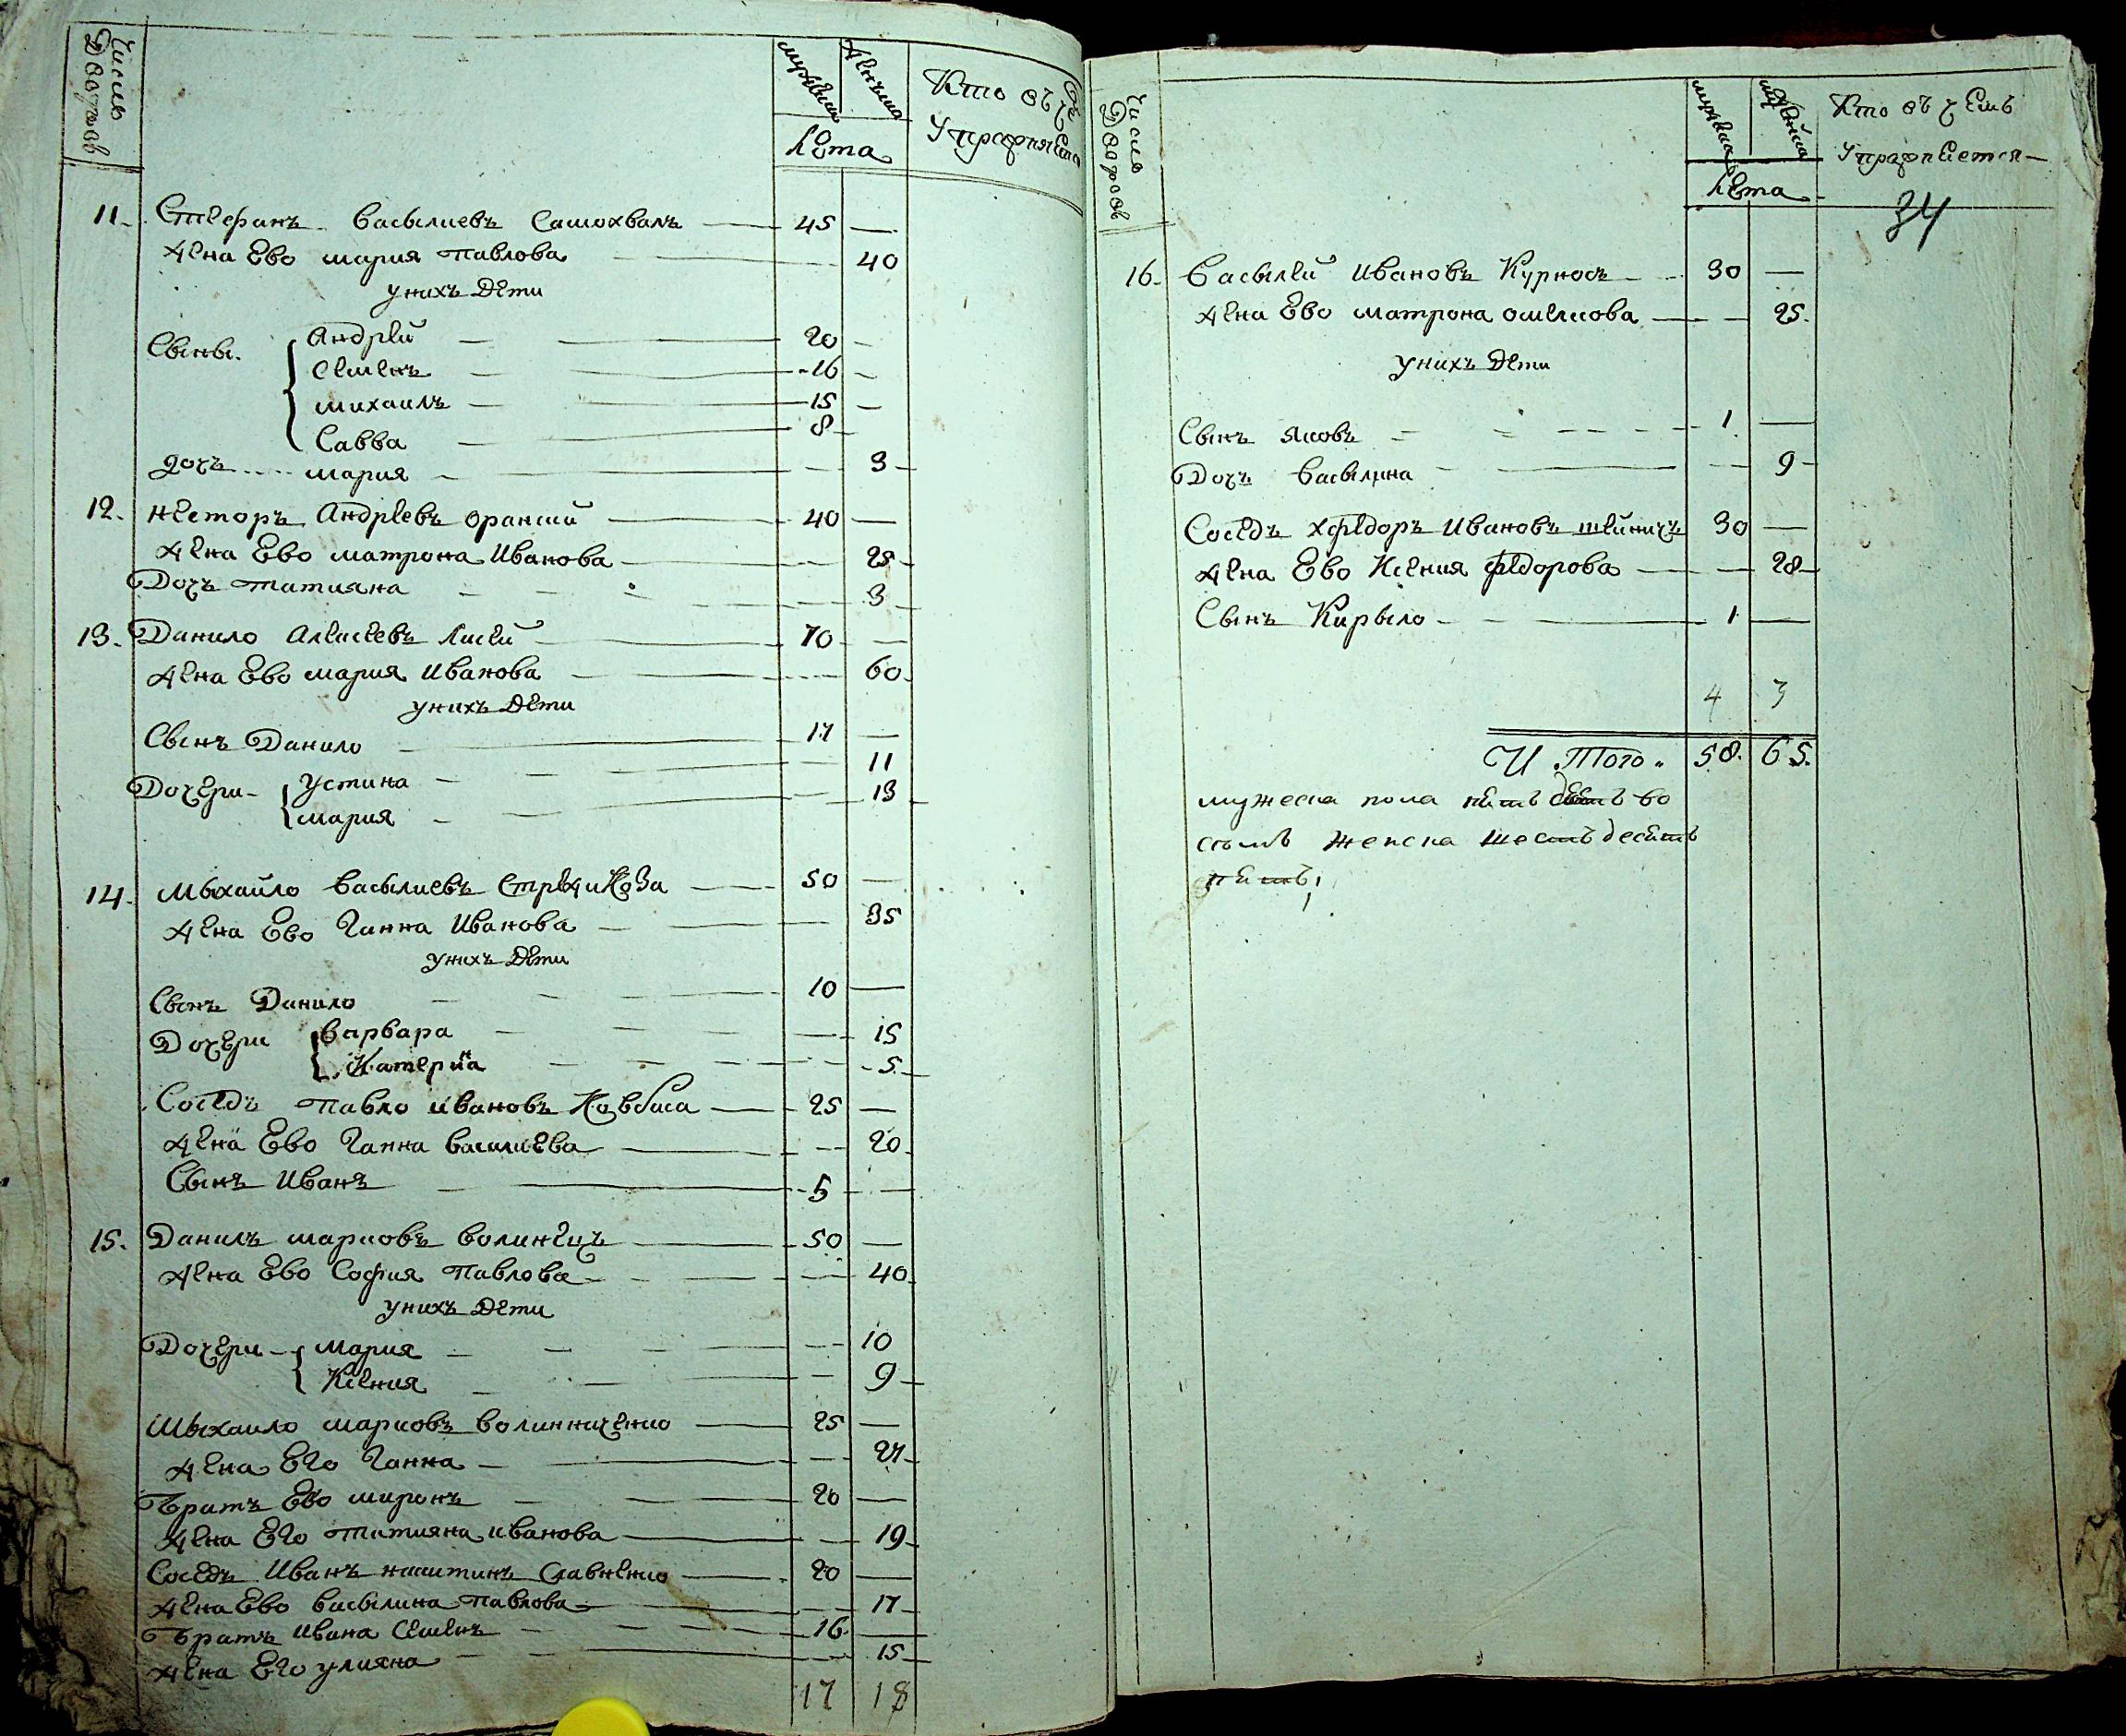 Число Дворовъ
мужеска
женска
лета
Кто въ чемъ
Упражняется
11. Стефанъ Васылиевъ Самохвалъ 45 —
жена Ево мария Павлова 40
унихъ Дети
Сыны. Андрей 20 —
Семенъ 16 —
михаилъ 15 —
Савва 8
дочъ мария 3
12. Несторъ Андреевъ 40 —
жена Ево матрона Иванова 25
Дочъ татияна 3
13. Данило Алексеевъ Лисей 70 —
жена Ево мария Иванова 60
унихъ Дети
Сынъ Данило 17 —
Дочери Устина 11
мария 13
14. Мыхайло Васылиевъ Стрижикоза 50 —
жена Ево Ганна Иванова 35
унихъ Дети
Сынъ Данило 10 —
Дочери Варвара 15
Катерина 5
Соседъ Павло Ивановъ Ковбаса 25 —
жена Ево Ганна Василиева 20
Сынъ Иванъ 5 —
15. Данилъ марковъ Волинецъ 50 —
жена Ево София Павлова 40
унихъ Дети
Дочери Мария 10
Ксения 9
Мыхаило марковъ Волинниченко 25 —
жена Его Ганна 27
Братъ Ево миронъ 20 —
жена Его татияна иванова 19
Соседъ Иванъ никитинъ Славненко 20 —
жена Ево Васылина Павлова 17
Братъ ивана Семенъ 16 —
жена Его улияна 15
17 18
Число Дворовъ
мужеска
женска
лета
Кто въ чемъ
Упражнается
34
16. Васылей Ивановъ Курносъ 30 —
жена Ево матрона омелкова 25.
унихъ Дети
Сынъ яковъ 1 —
Дочъ Васылина 9
Соседъ Хфедоръ Ивановъ 30 —
жена Ево Ксения федорова 28
Сынъ Кирыло 1 —
4 3
И Того 58. 65.
мужеска пола пятьдесятъ во
семъ женска шестьдесятъ
пять